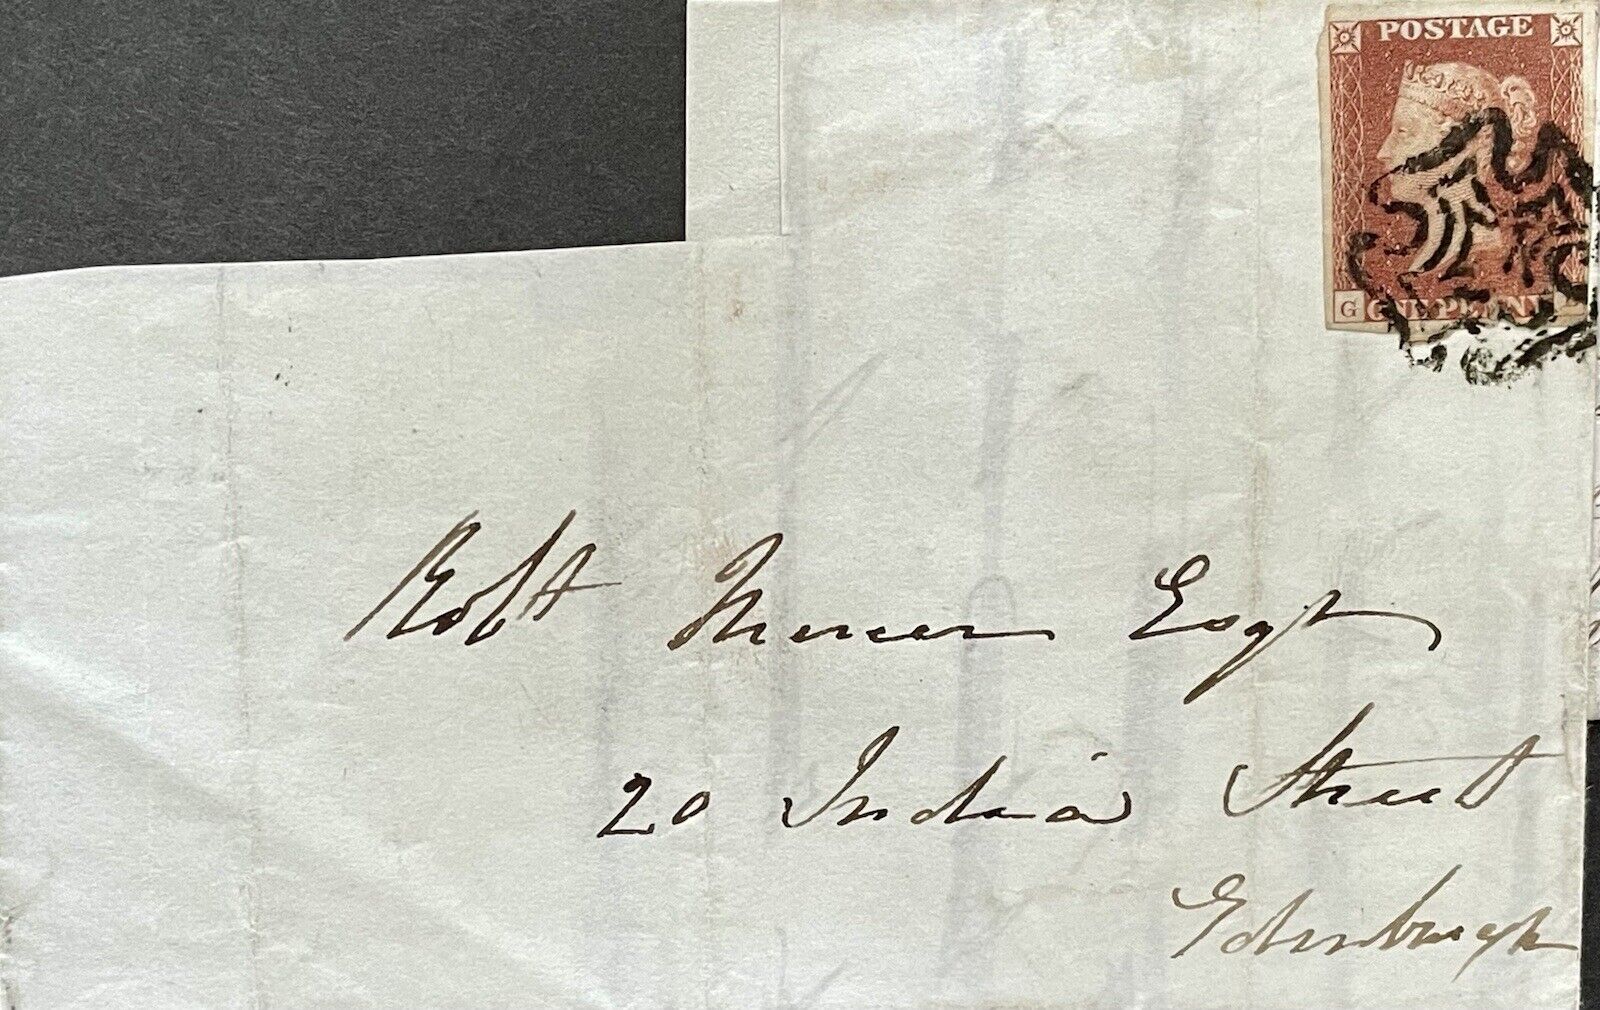 POSTAGE
G ONE PENNY
Robt Mercer Esqr
20 India Street
Edinburgh